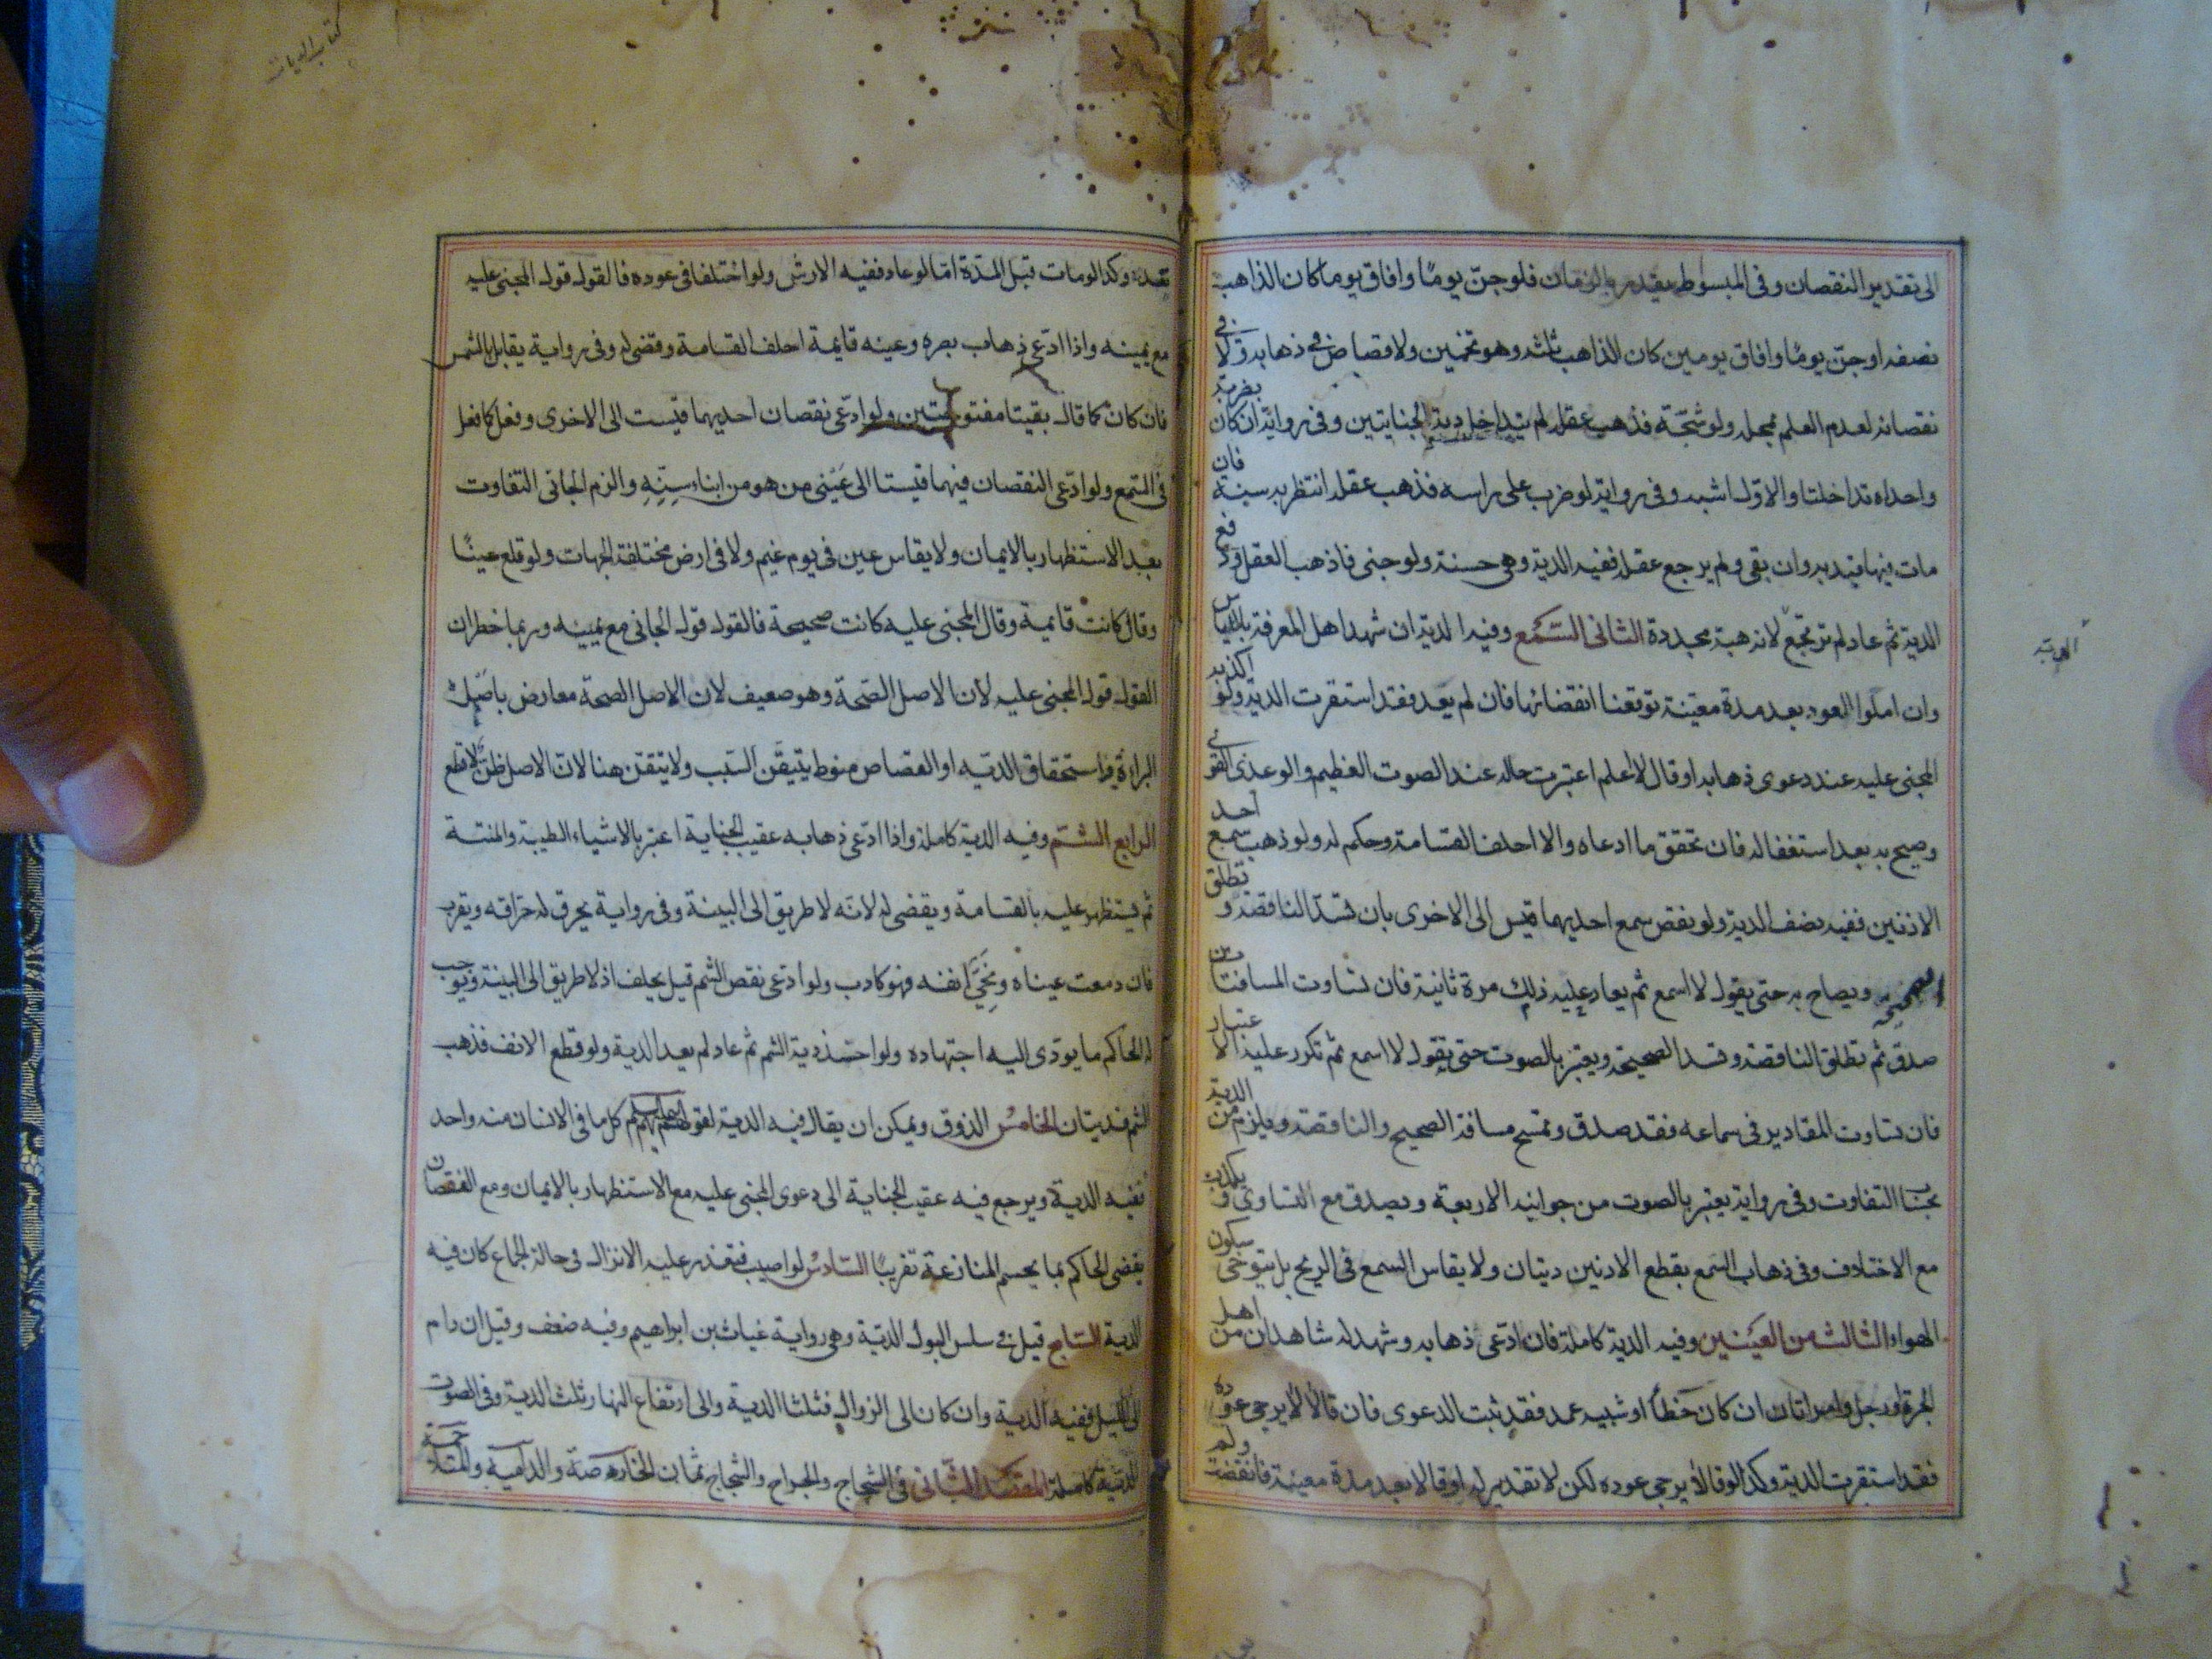 الى تقدير النقصان وفى المبسوط يقدر بالزمان فلو جنّ يومًا وافاق يوما كان الذاهب
نصفه او جنّ يومًا وافاق يومين كان الذاهب ثلثه وهو تخمين ولا قصاص فى ذهابه ولا فى
نقصانه لعدم العلم بمحله ولو شجّه فذهب عقله لم يتداخل دية الجنايتين وفى رواية ان كان بضربة
واحداه تداخلتا والاول اشبه وفى رواية لو ضرب على راسه فذهب عقله انتظر به سنة فان
مات فيها قيد به وان بقى ولم يرجع عقله ففيه الدية وهى حسنة ولو جنى فاذهب العقل ودفع
الدية ثم عاد لم ترتجع لانه هبة مجددة الثانى السّمع وفيه الدية ان شهد اهل المعرفة بالاياس
وان املوا العود بعد مدة معيّنة توقعنا انقضائها فان لم يعد فقد استقرت الدية ولو اكذبه
المجنى عليه عند دعوى ذهابه او قال لا اعلم اعتبرت حاله عند الصوت العظيم والوعد القوى
وصيح به بعد استغفاله فان تحقق ما ادعاه والا احلف القسامة وحكم له ولو ذهب سمع احد
الاذنين ففيه نصف الدية ولو نقص سمع احديهما قيس الى الاخرى بان تسدّ الناقصة وتطلق
الصحيحة ويصاح به حتى يقول لا اسمع ثم يعاد عليه ذلك مرة ثانية فان تساوت المسافتان
صدق ثم تطلق الناقصة وتسد الصحيحة ويعتبر بالصوت حتى يقول لا اسمع ثم تكرر عليه الاعتبار
فان تساوت المقادير فى سماعه فقد صدق وتمسح مسافة الصحيح والناقصة ويلزم من الدية
بحساب التفاوت وفى رواية يعتبر بالصوت من جوانبه الاربعة ويصدق مع التساوى ويكذب
مع الاختلاف وفى ذهاب السّمع بقطع الاذنين ديتان ولا يقاس السمع فى الريح بل يتوخى سكون
الهواء الثالث من العينين وفيه الدية كاملة فان ادّعى ذهابه وشهد له شاهدان من اهل
الخبرة او رجل وامراتان ان كان خطأ او شبيه عمد فقد ثبت الدعوى فان قالا لا يرجى عوده
فقد استقرت الدية وكذا لو قالا يرجى عوده لكن لا تقدير له او قالا بعد مدة معينة فانقضت ولم
المرتبة
كتاب الديات
تعد وكذا لو مات قبل المدّة امّا لو عاد ففيه الارش ولو اختلفا فى عوده فالقول قول المجنى عليه
مع يمينه واذا ادّعى ذهاب بصره وعينه قايمة احلف القسامة وقضى له وفى رواية يقابل بالشمس
فان كان كما قال بقيتا مفتوحتين ولو ادّعى نقصان احديهما قيست الى الاخرى وفعل كما فعل
فى السّمع ولو ادّعى النقصان فيهما قيستا الى عَيْنى من هو من ابناء سِنِّهِ والزم الجانى التفاوت
بعد الاستظهار بالايمان ولا يقاس عين فى يوم غيم ولا فى ارض مختلفة الجهات ولو قلع عينًا
وقال كانت قايمة وقال المجنى عليه كانت صحيحة فالقول قول الجانى مع يمينه وربما خطر ان
القول قول المجنى عليه لأن الاصل الصّحة وهو ضعيف لان الاصل الصحة معارض باصل
البراءة واستحقاق الديّه او القصاص منوط بتيقّن السّبب ولا يتقّن هنا لانّ الاصل ظنّ لا قطع
الرابع الشّم وفيه الدية كاملة واذا ادّعى ذهابه عقيب الجناية اعتبر بالاشياء الطيبة والمنتنة
ثم يستظهر عليه بالقسامة ويقضى له لانّه لا طريق الى البينة وفى رواية يحرق له حرّاقه ويقرب
فان دمعت عيناه ونحّى انفه فهو كاذب ولو ادّعى نقص الشم قيل يحلف اذ لا طريق الى البينة ويوجب
له الحاكم ما يودى اليه اجتهاده ولو اخذ دية الشم ثم عاد لم يعد الدية ولو قطع الانف فذهب
الشم فديتان الخامس الذوق ويمكن ان يقال فيه الدية لقولهم كل ما فى الانسان منه واحد
ففيه الدية ويرجع فيه عقيب الجناية الى دعوى المجنى عليه مع الاستظهار بالايمان ومع النقصان
يقضى الحاكم بما يحسم المنازعة تقريبًا السّادس لو اصيب فتعذر عليه الانزال فى حالة الجماع كان فيه
الدية السّابع قيل فى سلس البول الديّة وهى رواية غياث بن ابراهيم وفيه ضعف وقيل ان دام
الى الليل ففيه الدية وان كان الى الزوال فثلثا الدية والى ارتفاع النهار ثلث الدية وفى الصوت
الديّة كاملة المقصد الثّانى فى الشجاج والجراح والشجاج ثمان الخارصة والدامية والمتلاحمة